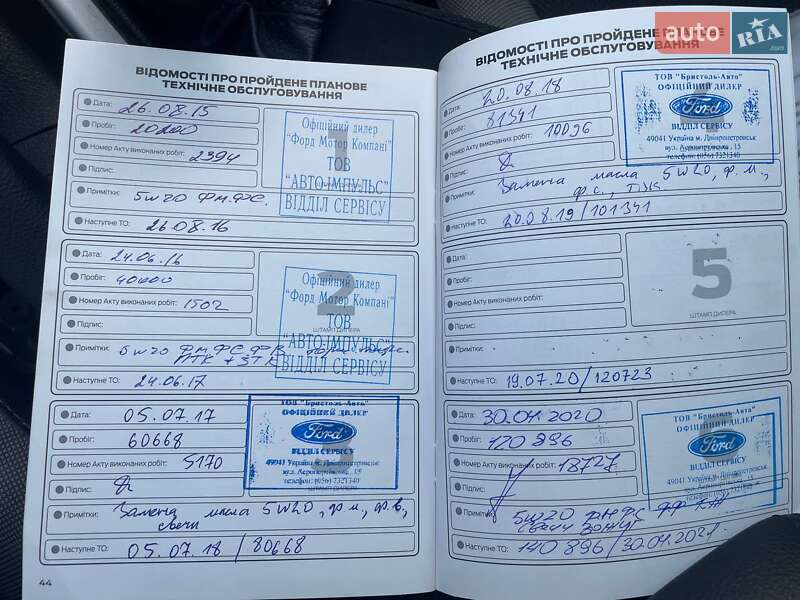 auto RIA
ВІДОМОСТІ ПРО ПРОЙДЕНЕ ПЛАНОВЕ
ТЕХНІЧНЕ ОБСЛУГОВУВАННЯ
Дата: 26.08.15
Пробіг: 20200
Номер Акту виконаних робіт: 2394
Підпис:
Примітки: 5w20 Фм.ФС.
Наступне ТО: 26.08.16
Офіційний дилер
"Форд Мотор Компані"
ТОВ
"АВТО-ІМПУЛЬС"
ВІДДІЛ СЕРВІСУ
Дата: 24.06.16
Пробіг: 40000
Номер Акту виконаних робіт: 1502
Підпис:
Примітки: 5w20 Фм ФС ФВ
Наступне ТО: 24.06.17
2
ШТАМП ДИЛЕРА
Офіційний дилер
"Форд Мотор Компані"
ТОВ
"АВТО-ІМПУЛЬС"
ВІДДІЛ СЕРВІСУ
Дата: 05.07.17
Пробіг: 60668
Номер Акту виконаних робіт: 5170
Підпис:
Примітки: Замена масла 5W20, ф.м., ф.в.,
свечи
Наступне ТО: 05.07.18 / 80668
ТОВ "Бристоль-Авто"
ОФІЦІЙНИЙ ДИЛЕР
Ford
ВІДДІЛ СЕРВІСУ
49041 Україна м. Дніпропетровськ
вул. Аеропортівська, 15
телефон: (056) 7321340
44
ВІДОМОСТІ ПРО ПРОЙДЕНЕ ПЛАНОВЕ
ТЕХНІЧНЕ ОБСЛУГОВУВАННЯ
Дата: 20.08.18
Пробіг: 81341
Номер Акту виконаних робіт: 10096
Підпис:
Примітки: Замена масла 5W20, ф.м.,
ф.с.,
Наступне ТО: 20.08.19 / 101341
ТОВ "Бристоль-Авто"
ОФІЦІЙНИЙ ДИЛЕР
Ford
ВІДДІЛ СЕРВІСУ
49041 Україна м. Дніпропетровськ
вул. Аеропортівська, 15
телефон: (056) 7321340
Дата:
Пробіг:
Номер Акту виконаних робіт:
Підпис:
Примітки:
Наступне ТО: 19.07.20 / 120723
5
ШТАМП ДИЛЕРА
Дата: 30.04.2020
Пробіг: 120 896
Номер Акту виконаних робіт: 18727
Підпис:
Примітки: 5W20 ФМ ФС
Наступне ТО: 140 896 / 30.04.2021
ТОВ "Бристоль-Авто"
ОФІЦІЙНИЙ ДИЛЕР
Ford
ВІДДІЛ СЕРВІСУ
49041 Україна м. Дніпропетровськ
вул. Аеропортівська, 15
телефон: (056) 7321340